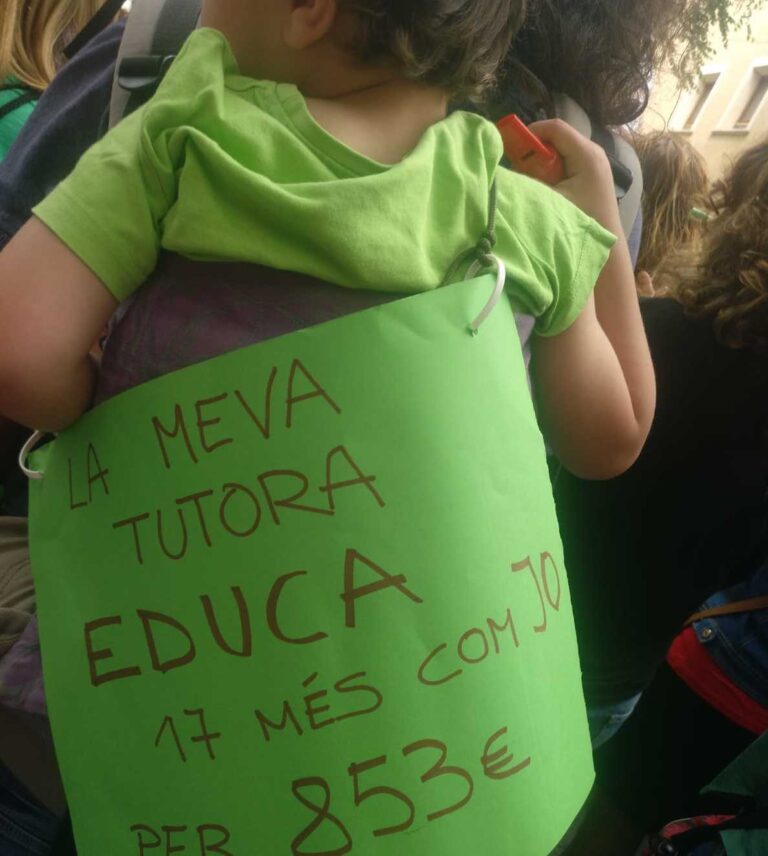 LA MEVA
TUTORA
EDUCA
17 MÉS COM JO
PER 853€